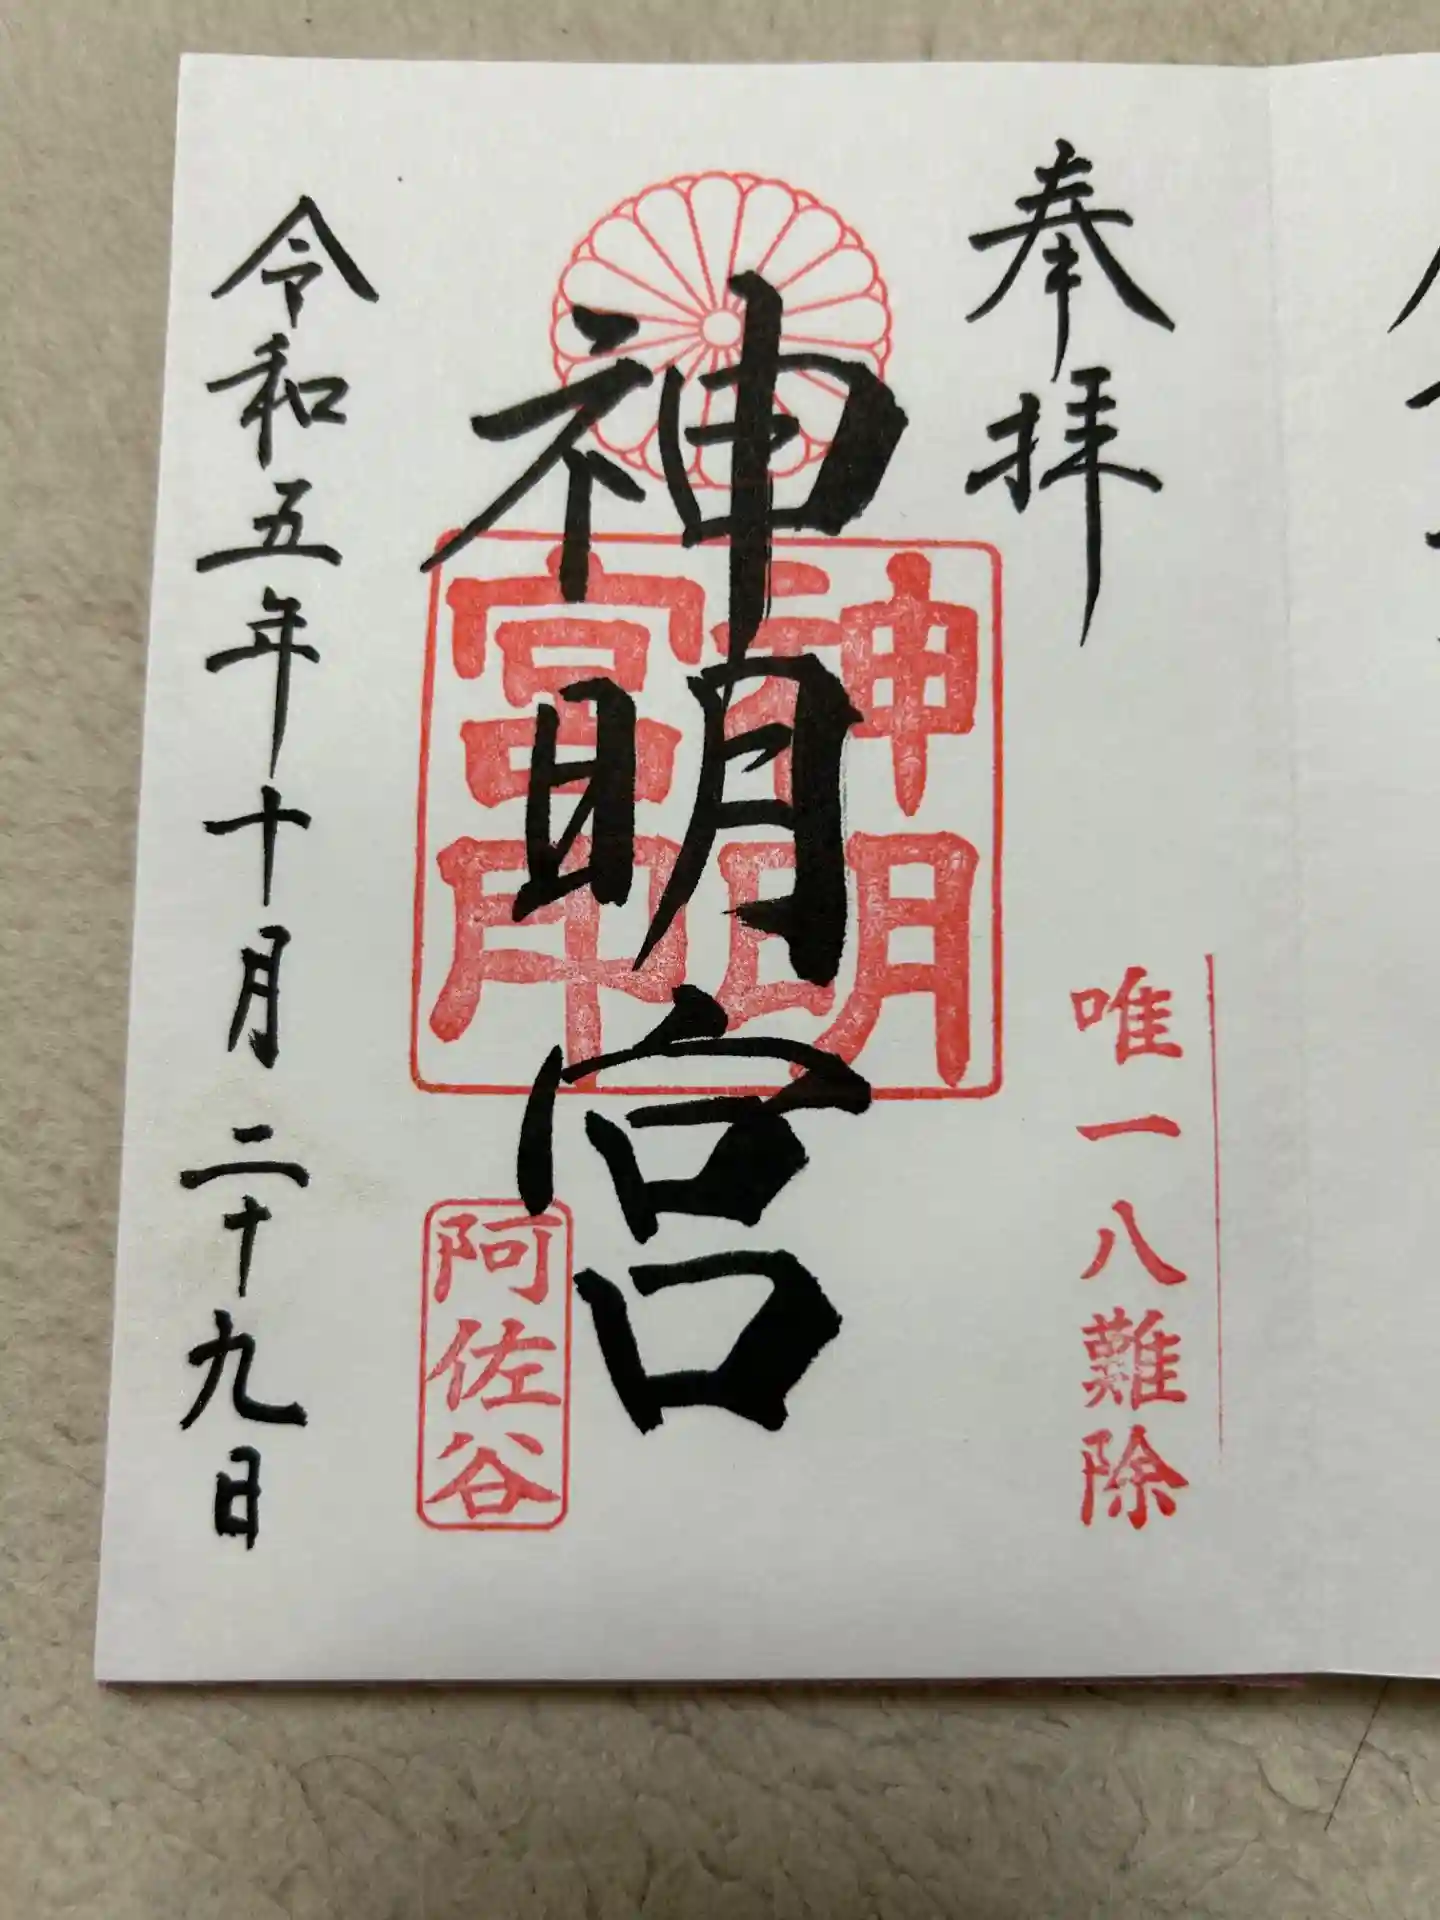 奉拝
唯一八難除
神明宮
神明宮印
阿佐谷
令和五年十月二十九日